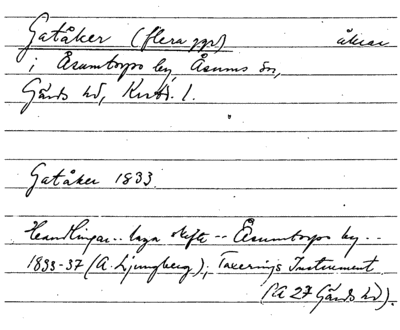 Gatåker (flera ggr) åkrar
i Åsumtorps by, Åsums sn,
Gärds hd, Krist. l.
Gatåker 1833
Handlingar.. laga skifte -- Åsumtorps by..
1833-37 (A. Ljungberg); Taxerings Instrument
(A 27 Gärds hd).